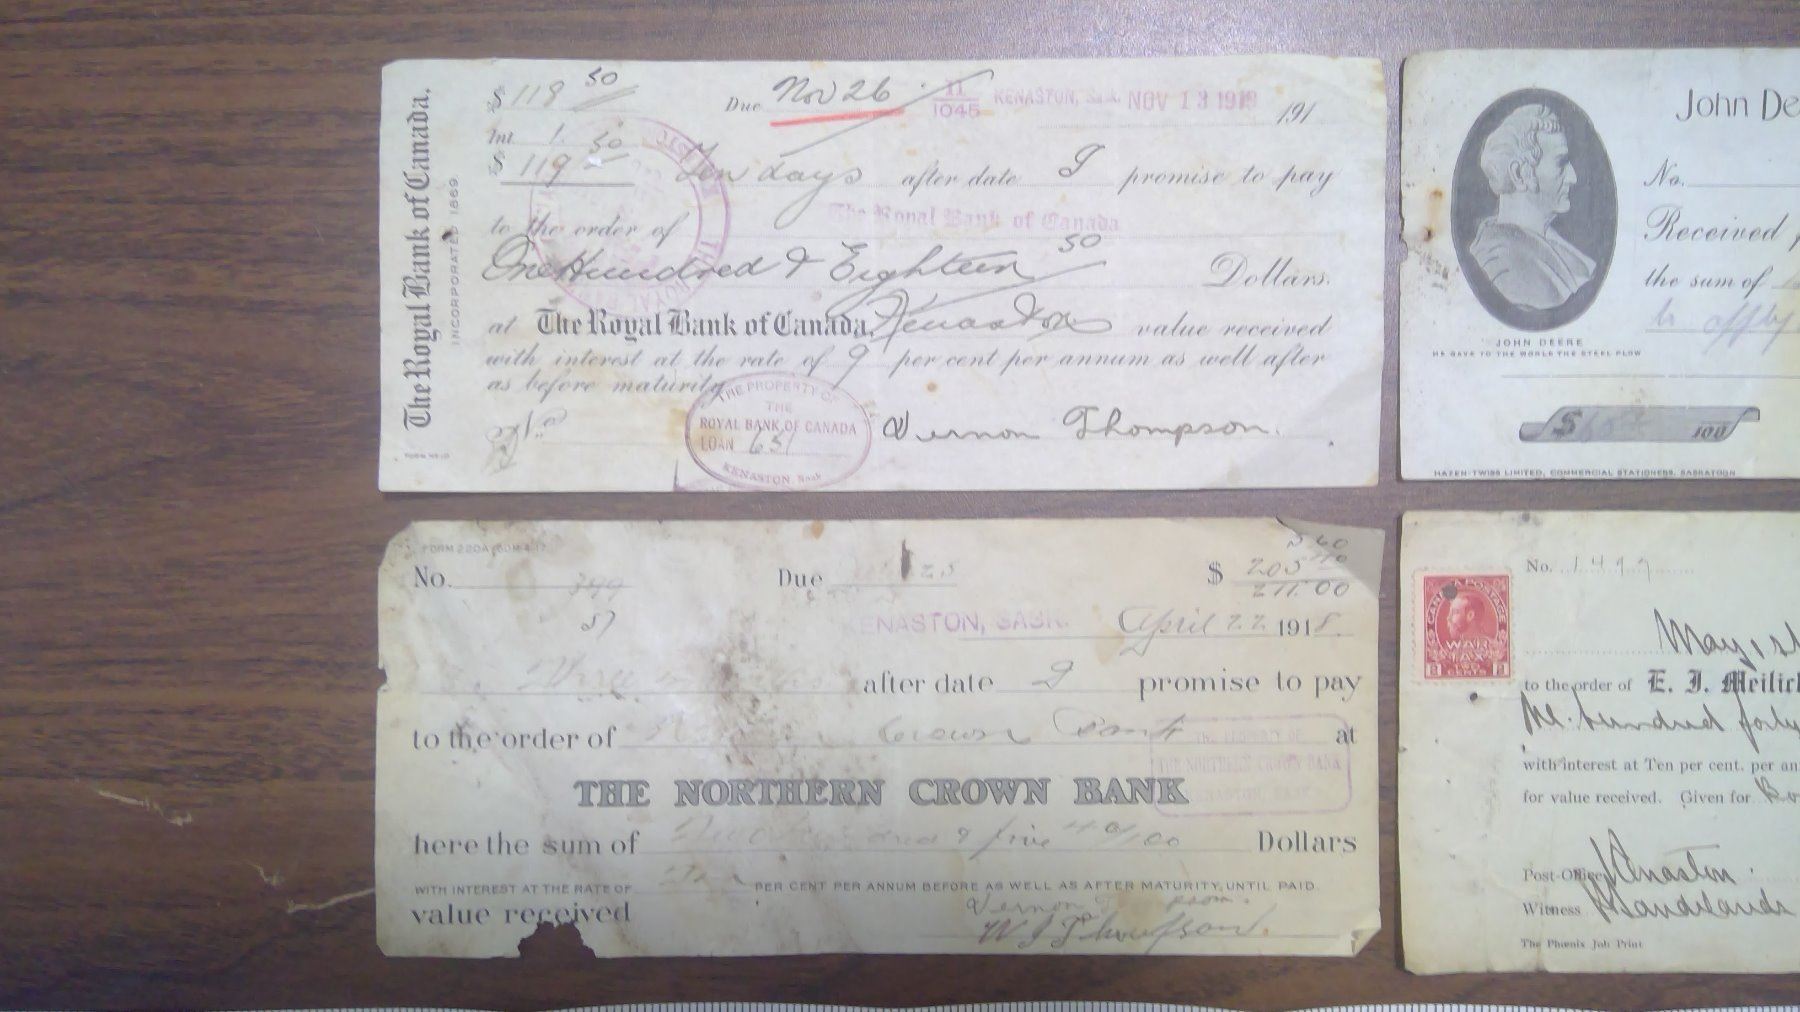 The Royal Bank of Canada.
INCORPORATED 1869
$ 118 50
Due Nov 26 11 1045 KENASTON, Sask. NOV 13 1919 191
Int 1. 50
$ 119
Ten days after date I promise to pay
to the order of The Royal Bank of Canada
One Hundred & Eighteen 50 Dollars.
at The Royal Bank of Canada, Kenaston value received
with interest at the rate of 9 per cent per annum as well after
as before maturity
No.
THE PROPERTY OF
THE
ROYAL BANK OF CANADA
LOAN 651
KENASTON, Sask
Vernon Thompson.
John De
No.
Received
the sum of
to apply
JOHN DEERE
HE GAVE TO THE WORLD THE STEEL PLOW
$ 100
HAZEN-TWISS LIMITED, COMMERCIAL STATIONERS, SASKATOON
FORM 220A
No. 399
Due 25
$ 205 40
5 60
211.00
87
KENASTON, SASK. April 22 1918.
Three months after date I promise to pay
to the order of Crown Bank at
THE PROPERTY OF
THE NORTHERN CROWN BANK
KENASTON, SASK.
THE NORTHERN CROWN BANK
here the sum of Two hundred & five 40/100 Dollars
WITH INTEREST AT THE RATE OF PER CENT PER ANNUM BEFORE AS WELL AS AFTER MATURITY, UNTIL PAID.
value received
Vernon
W J Thompson.
No. 1499
CANADA POSTAGE
WAR
TAX
2 CENTS 2
May 1st
to the order of E. J. Meilic
hundred forty
with interest at Ten per cent. per an
for value received. Given for
Post-Office Kenaston
Witness
The Phœnix Job Print